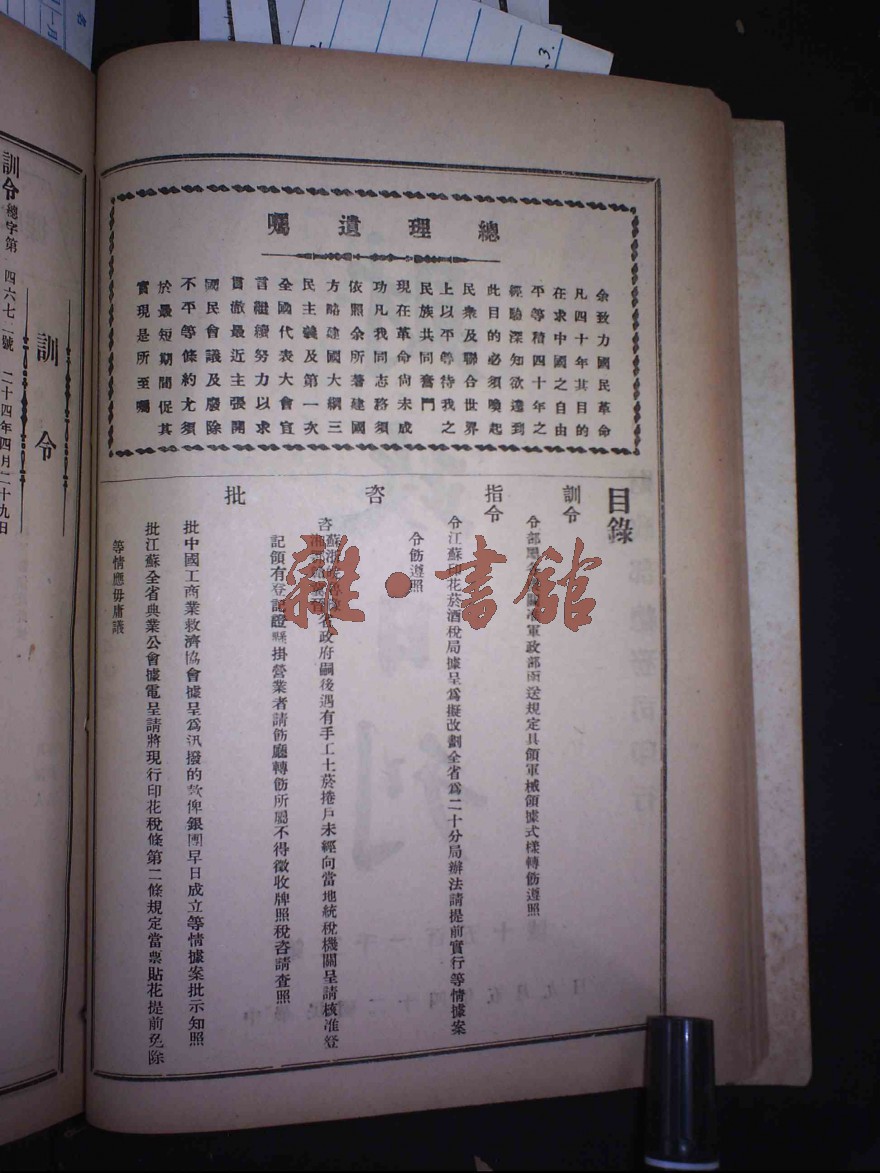 總理遺囑
余致力國民革命
凡四十年其目的
在求中國之自由
平等積四十年之
經驗深知欲達到
此目的必須喚起
民衆及聯合世界
上以平等待我之
民族共同奮鬥
現在革命尙未成
功凡我同志務須
依照余所著建國
方略建國大綱三
民主義及第一次
全國代表大會宣
言繼續努力以求
貫澈最近主張開
國民會議及廢除
不平等條約尤須
於最短期間促其
實現是所至囑
目錄
訓令
令部屬各機關准軍政部函送規定具領軍械領據式樣轉飭遵照
指令
令江蘇印花菸酒稅局據呈爲擬改劃全省爲二十分局辦法請提前實行等情據案
令飭遵照
咨
咨蘇浙省政府嗣後遇有手工土菸捲戶未經向當地統稅機關呈請核准登
記領有登記證懸掛營業者請飭廳轉飭所屬不得徵收牌照稅咨請查照
批
批中國工商業救濟協會據呈爲汛撥的款俾銀團早日成立等情據案批示知照
批江蘇全省典業公會據電呈請將現行印花稅條第二條規定當票貼花提前免除
等情應毋庸議
訓令
訓令總字第四六七二號 二十四年四月二十九日
雜·書館